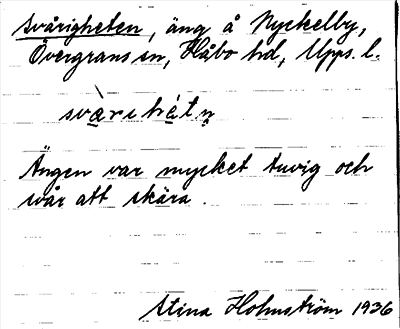 Svårigheten, äng å Nyckelby,
Övergrans sn, Håbo hd, Upps. l.
svàrihétn̥
Ängen var mycket tuvig och
svår att skära.
Stina Holmström 1936